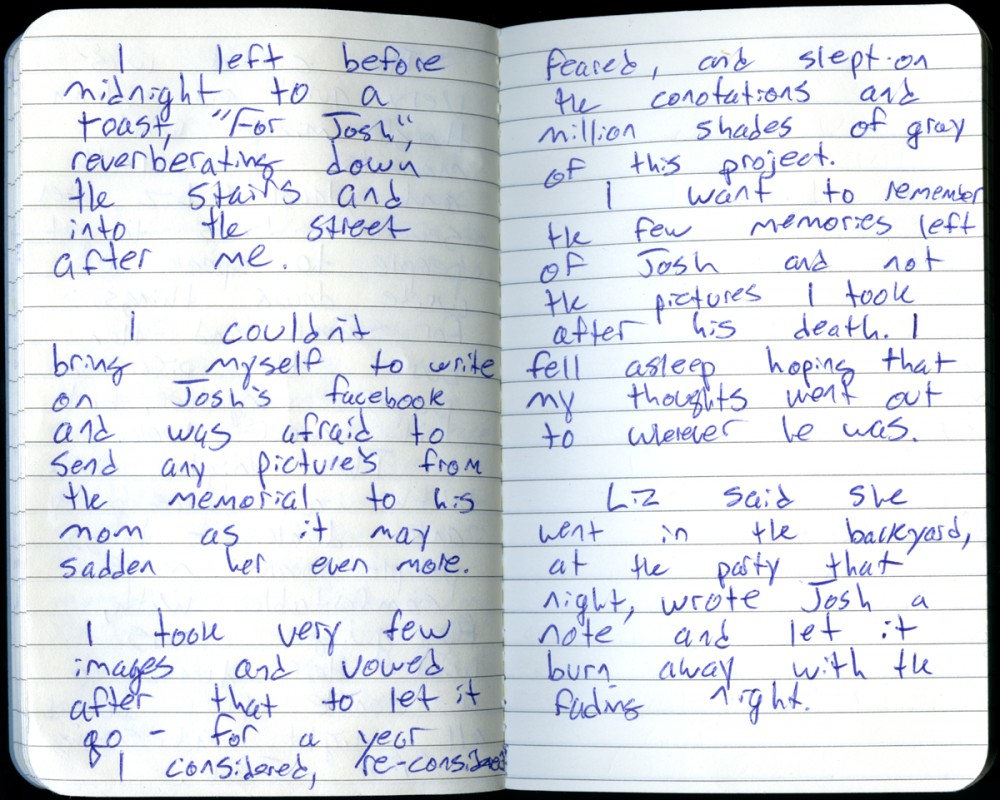 I left before
midnight to a
toast, "For Josh",
reverberating down
the stairs and
into the street
after me.
I couldn't
bring myself to write
on Josh's facebook
and was afraid to
send any picture's from
the memorial to his
mom as it may
sadden her even more.
I took very few
images and vowed
after that to let it
go - for a year
I considered, re-considered
feared, and slept on
the conotations and
million shades of gray
of this project.
I want to remember
the few memories left
of Josh and not
the pictures I took
after his death. I
fell asleep hoping that
my thoughts went out
to wherever he was.
Liz said she
went in the backyard,
at the party that
night, wrote Josh a
note and let it
burn away with the
fading night.